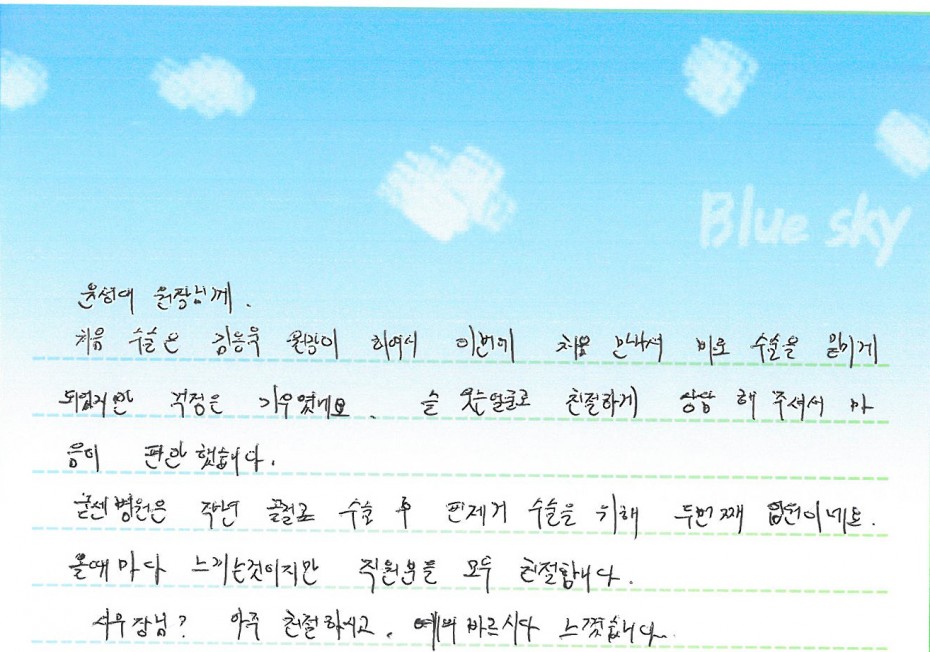 Blue sky
윤성대 원장님께.
처음 수술은 김응욱 원장이 하여서 이번에 처음 만나서 바로 수술을 맡기게
되었지만 걱정은 기우였네요. 늘 웃는얼굴로 친절하게 상담 해 주셔서 마
음이 편안했습니다.
병원은 작년 골절로 수술 후 핀제거 수술을 위해 두번째 입원이네요.
올때마다 느끼는것이지만 직원분들 모두 친절합니다.
아주 친절하시고, 예의 바르시다 느꼈습니다.